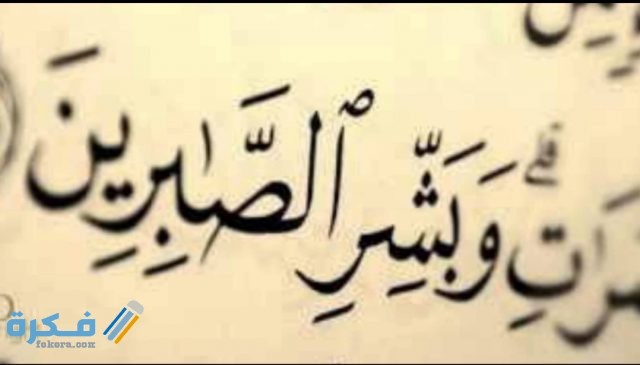 وَبَشِّرِ ٱلصَّٰبِرِينَ
فكرة
fekera.com